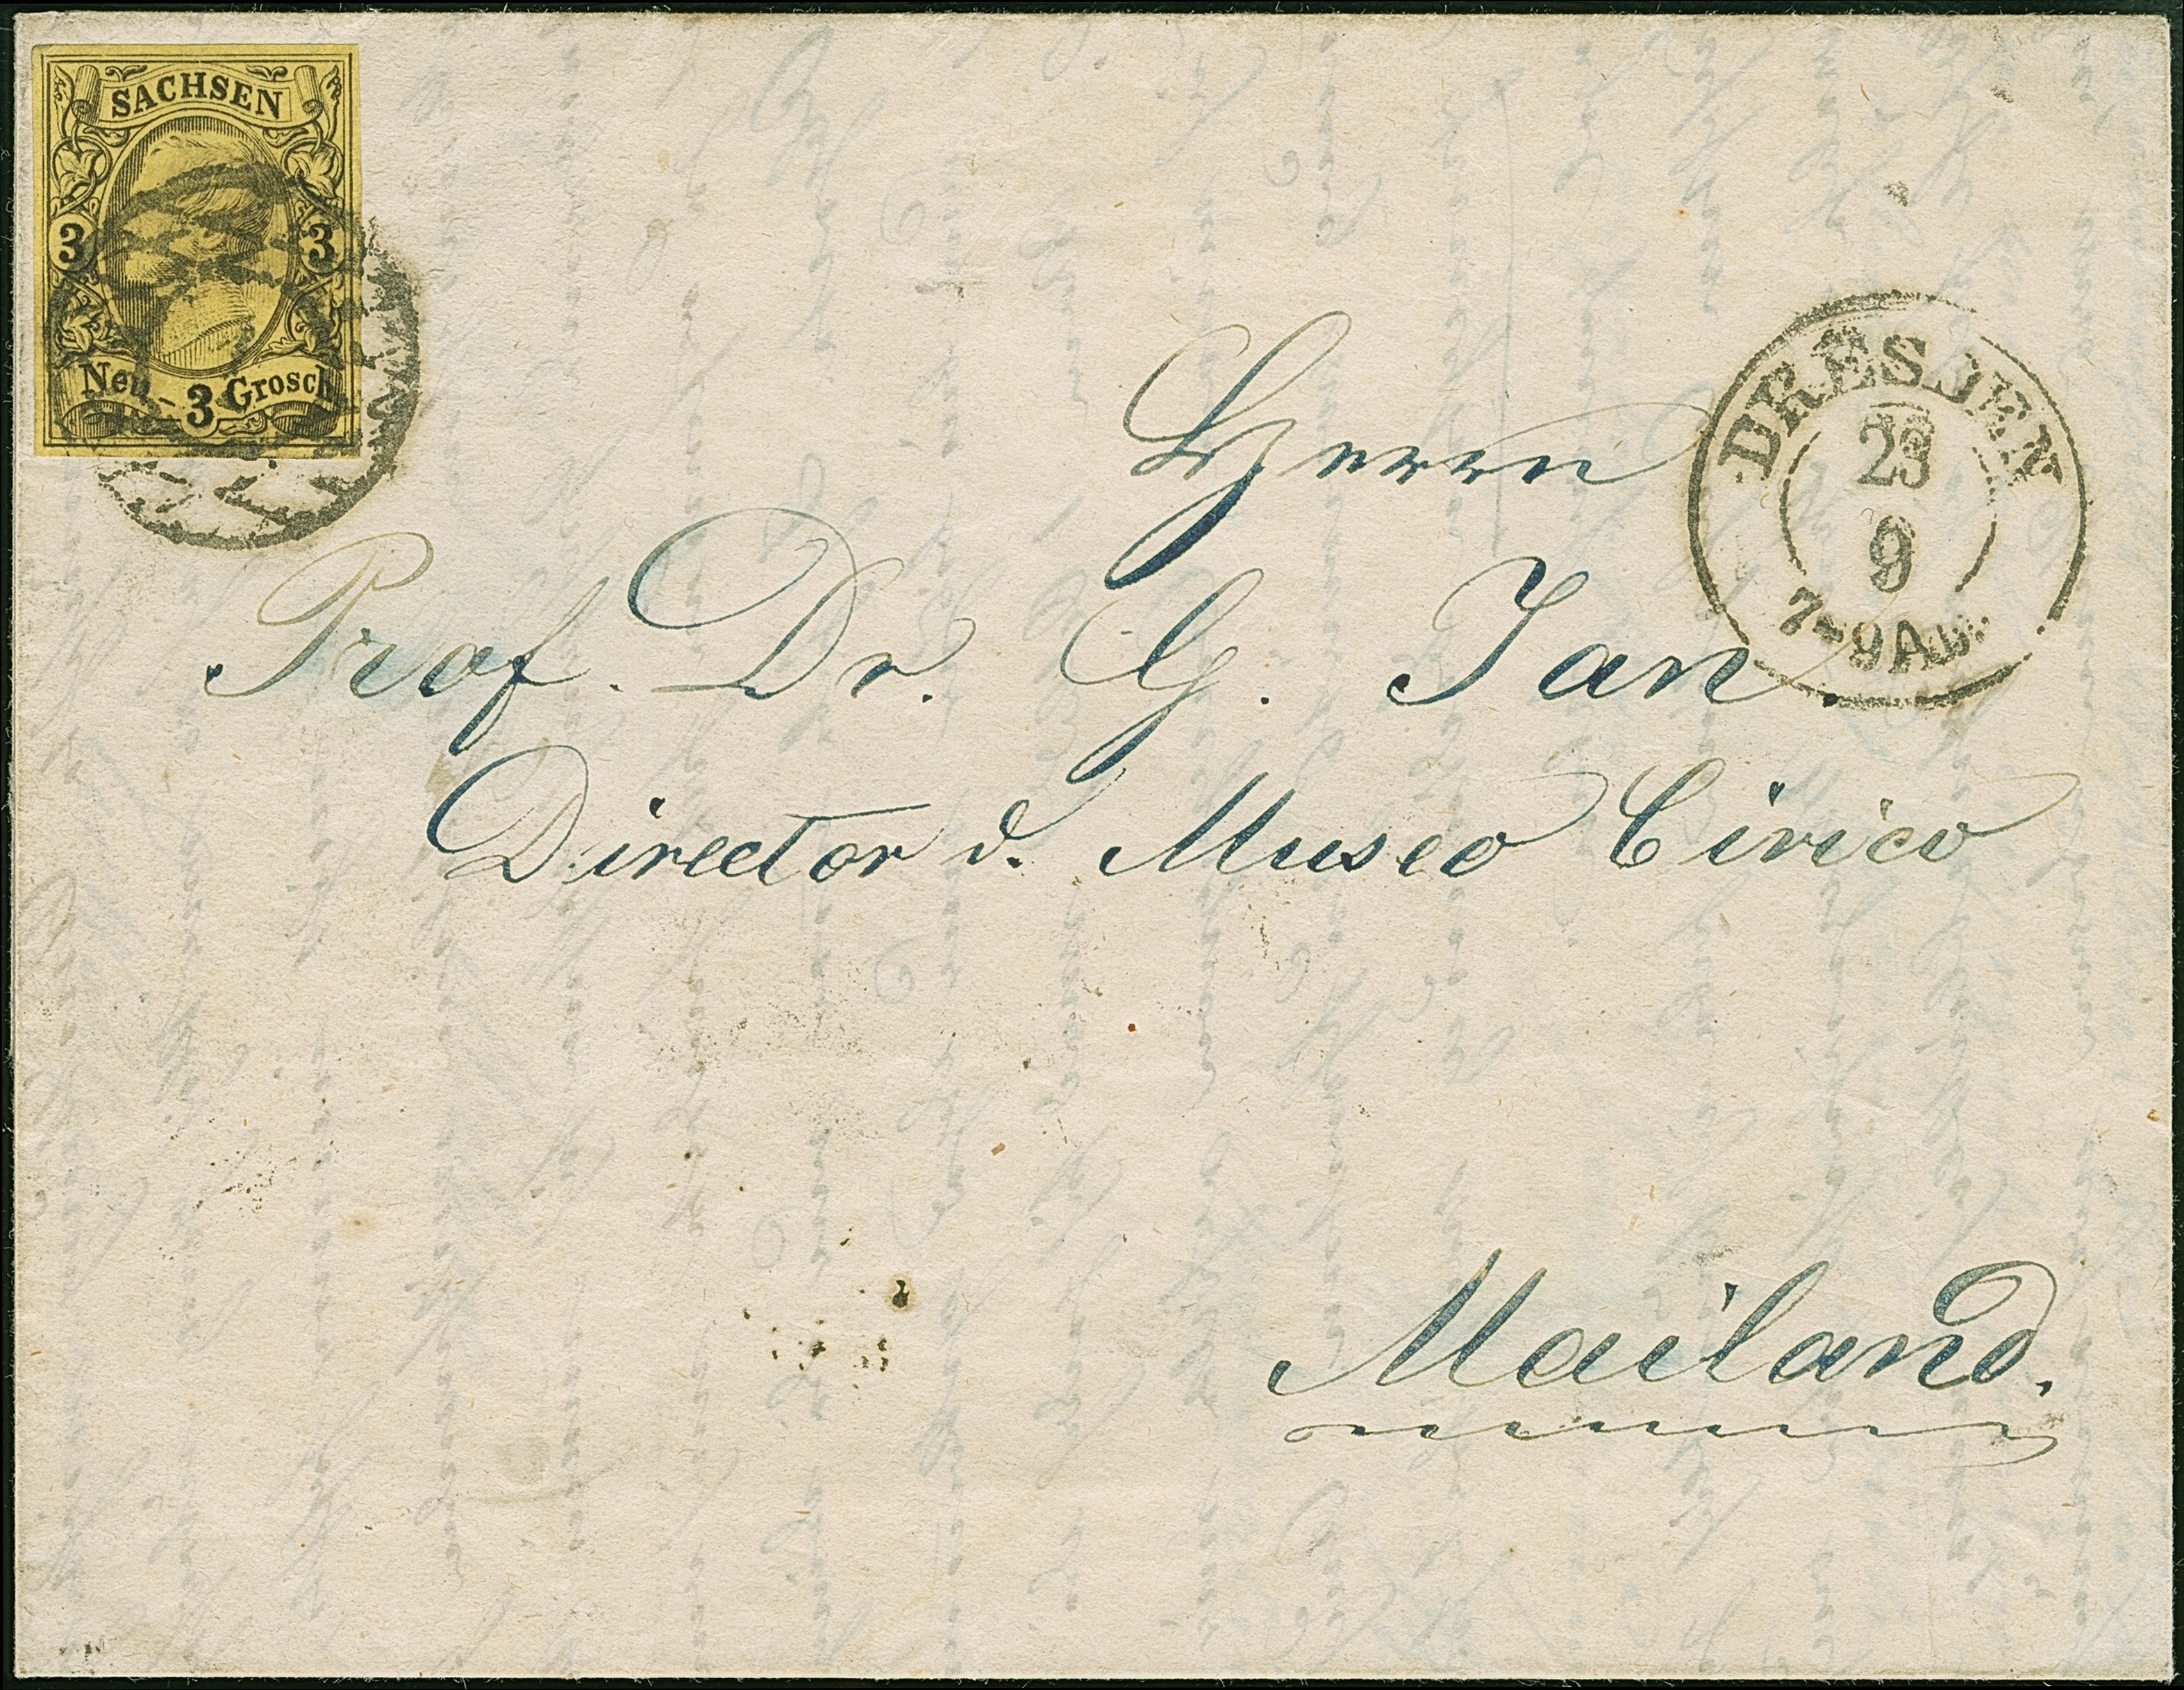 SACHSEN
3 3
Neu- 3 Grosch
DRESDEN
23
9
7-9 Ab.
Herrn
Prof. Dr. G. Jan.
Director d. Museo Civico
Mailand.